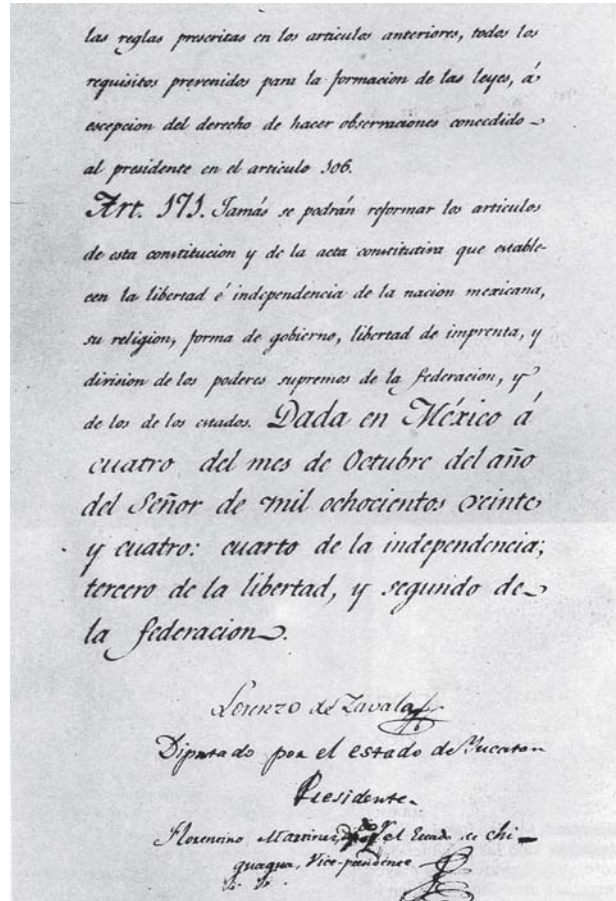 las reglas prescritas en los articulos anteriores, todos los
requisitos prevenidos para la formacion de las leyes, á
escepcion del derecho de hacer observaciones concedido
al presidente en el articulo 106.
Art. 171. Jamás se podrán reformar los articulos
de esta constitucion y de la acta constitutiva que estable-
cen la libertad é independencia de la nacion mexicana,
su religion, forma de gobierno, libertad de imprenta, y
division de los poderes supremos de la federacion, y
de los de los estados. Dada en México á
cuatro del mes de Octubre del año
del Señor de mil ochocientos veinte
y cuatro: cuarto de la independencia;
tercero de la libertad, y segundo de
la federacion.
Lorenzo de Zavala
Diputado por el estado de Yucatan
Presidente.
Florentino Martinez, el Estado de Chi-
guagua, Vice-presidente